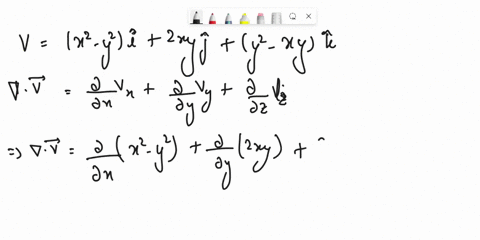 V = (x²-y²) î + 2xy ĵ + (y² - xy) k̂
∇·V⃗ = ∂/∂x Vx + ∂/∂y Vy + ∂/∂z Vz
=> ∇·V⃗ = ∂/∂x (x²-y²) + ∂/∂y (2xy) +